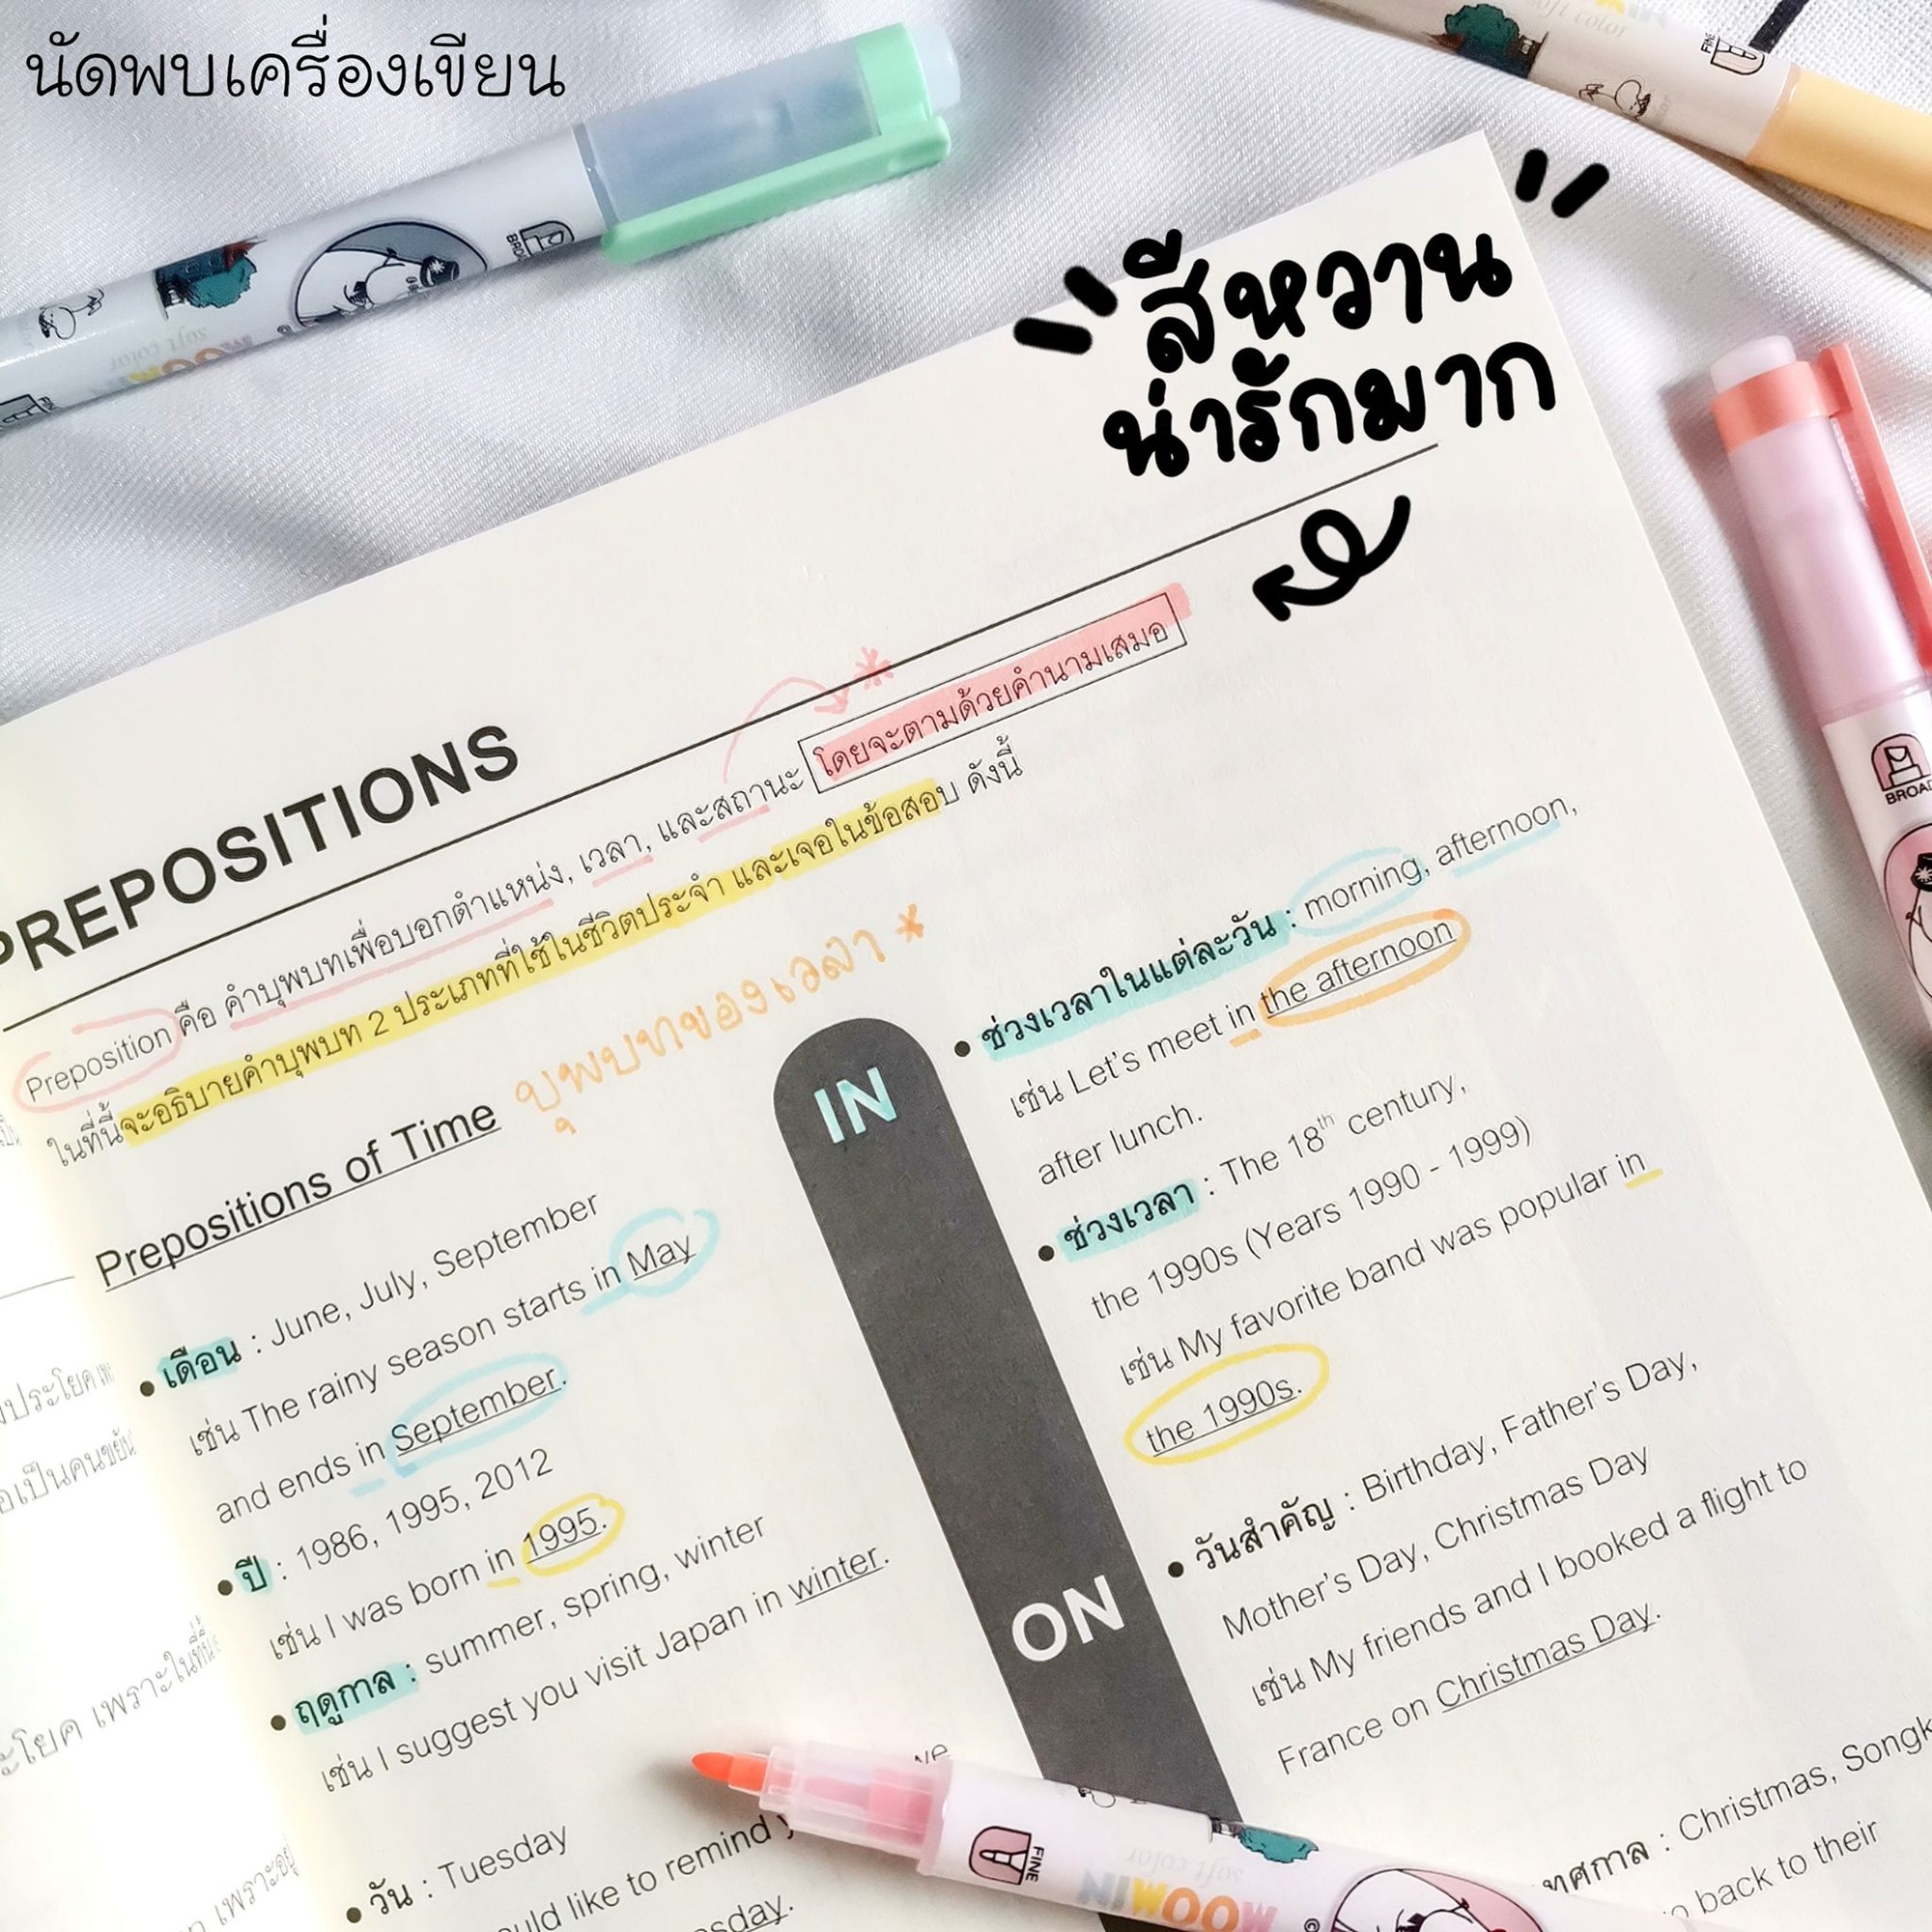 นัดพบเครื่องเขียน
สีหวาน
น่ารักมาก
PREPOSITIONS
Preposition คือ คำบุพบทเพื่อบอกตำแหน่ง, เวลา, และสถานะ โดยจะตามด้วยคำนามเสมอ
ในที่นี้จะอธิบายคำบุพบท 2 ประเภทที่ใช้ในชีวิตประจำ และเจอในข้อสอบ ดังนี้
Prepositions of Time บุพบทของเวลา *
• เดือน : June, July, September
เช่น The rainy season starts in May
and ends in September.
• ปี : 1986, 1995, 2012
เช่น I was born in 1995.
• ฤดูกาล : summer, spring, winter
เช่น I suggest you visit Japan in winter.
• วัน : Tuesday
like to remind
IN
• ช่วงเวลาในแต่ละวัน : morning, afternoon,
เช่น Let's meet in the afternoon
after lunch.
• ช่วงเวลา : The 18th century,
the 1990s (Years 1990 - 1999)
เช่น My favorite band was popular in
the 1990s.
ON
• วันสำคัญ : Birthday, Father's Day,
Mother's Day, Christmas Day
เช่น My friends and I booked a flight to
France on Christmas Day.
: Christmas,
back to their
BROAD
FINE
MOOMIN
soft color